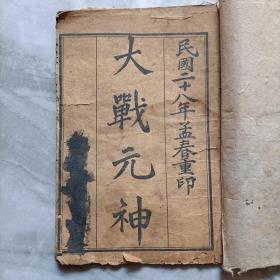 民國二十八年孟春重印
大戰元神